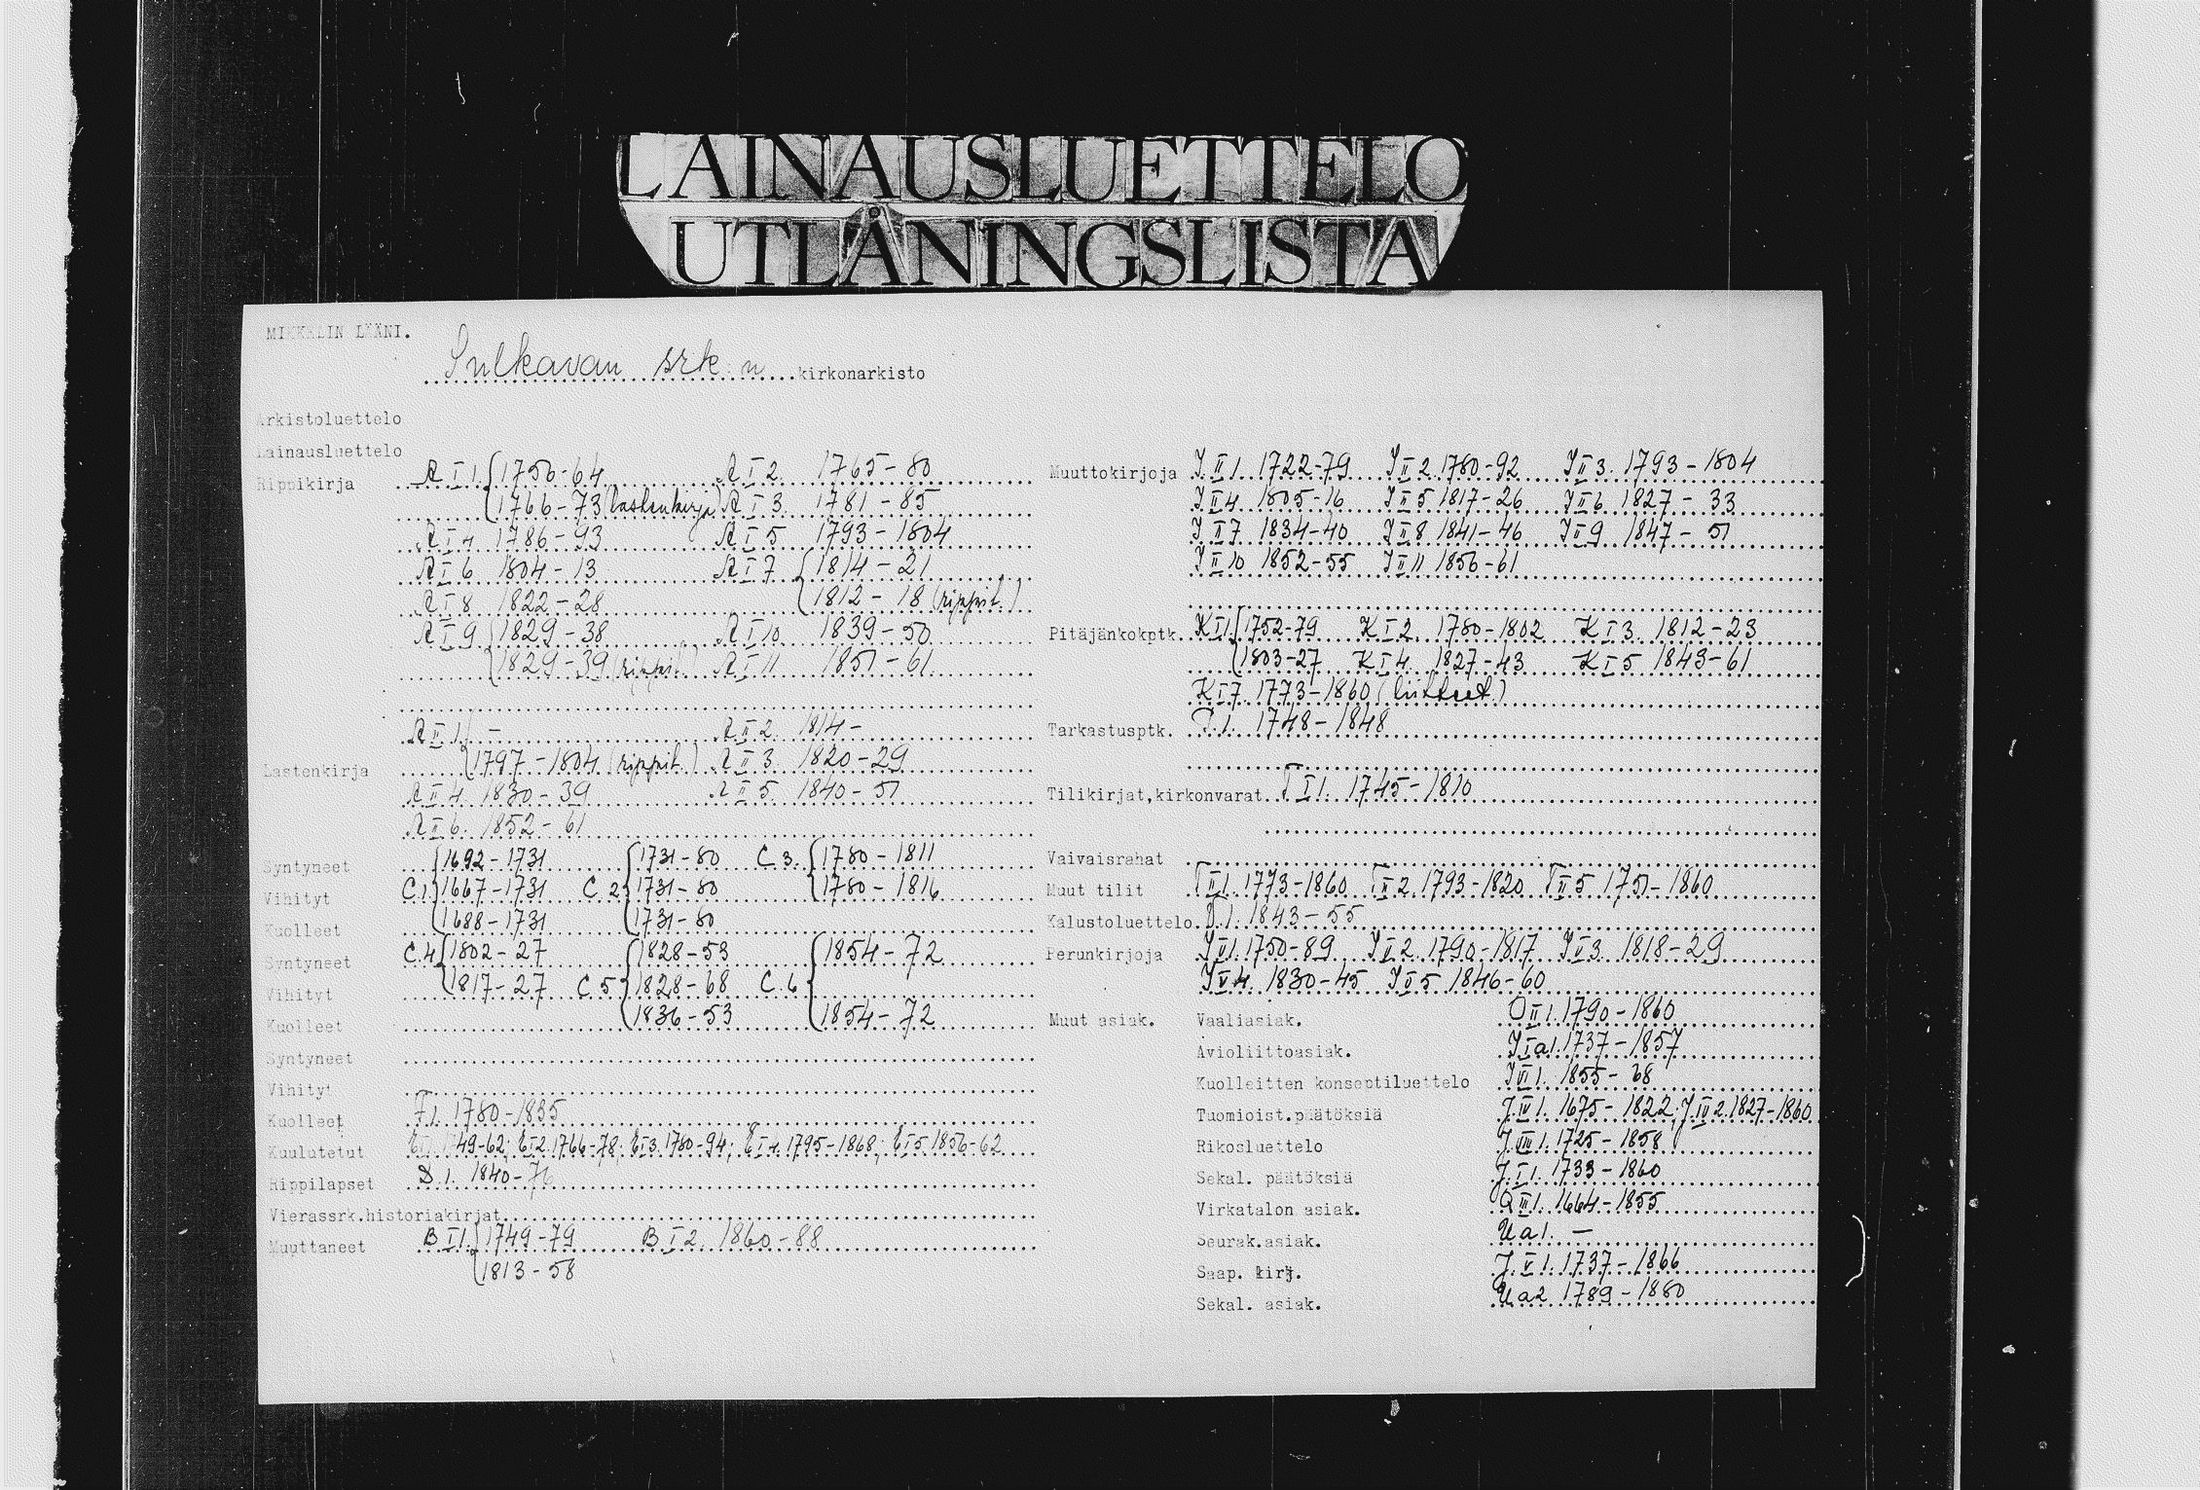 LAINAUSLUETTELO
UTLÅNINGSLISTA
MIKKELIN LÄÄNI.
Sulkavan srk:n kirkonarkisto
Arkistoluettelo
Lainausluettelo
Rippikirja A I 1. 1756-64 A I 2 1765-80
1766-73 (lastenkirja) A I 3. 1781-85
A I 4 1786-93 A I 5 1793-1804
A I 6 1804-13 A I 7 1814-21
A I 8 1822-28 1812-18 (rippit.)
A I 9 1829-38 A I 10 1839-50
1829-39 (rippit.) A I 11 1851-61
A II 1. - A II 2. 1814-
Lastenkirja 1797-1804 (rippit.) A II 3. 1820-29
A II 4. 1830-39 A II 5. 1840-51
A II 6. 1852-61
Syntyneet 1692-1731 1731-80 C 3. 1780-1811
Vihityt C.1 1667-1731 C 2 1731-80 1780-1816
Kuolleet 1688-1731 1731-80
Syntyneet C.4 1802-27 1828-53 1854-72
Vihityt 1817-27 C 5 1828-68 C.6
Kuolleet 1836-53 1854-72
Syntyneet
Vihityt
Kuolleet F.1. 1780-1835
Kuulutetut 49-62; E I 2. 1766-78; E I 3. 1780-94; E I 4. 1795-1868; E I 5. 1856-62
Rippilapset D.1. 1840-76
Vierassrk.historiakirjat
Muuttaneet B I 1. 1749-79 B I 2. 1860-88
1813-58
Muuttokirjoja J II 1. 1722-79 J II 2. 1780-92 J II 3. 1793-1804
J II 4 1805-16 J II 5 1817-26 J II 6 1827-33
J II 7 1834-40 J II 8 1841-46 J II 9 1847-51
J II 10 1852-55 J II 11 1856-61
Pitäjänkokptk. K I 1. 1752-79 K I 2. 1780-1802 K I 3. 1812-23
1803-27 K I 4. 1827-43 K I 5 1843-61
K I 7. 1773-1860 (liitteet)
Tarkastusptk. P.1. 1748-1848
Tilikirjat,kirkonvarat T I 1. 1745-1810
Vaivaisrahat
Muut tilit T II 1. 1773-1860 T II 2. 1793-1820 T II 5 1751-1860
Kalustoluettelo .1. 1843-55
Perunkirjoja J VI 1. 1750-89 2. 1790-1817 3. 1818-29
4. 1830-45 5 1846-60
Muut asiak. Vaaliasiak. O II 1. 1790-1860
Avioliittoasiak. 1737-1857
Kuolleitten konseptiluettelo 1855-68
Tuomioist.päätöksiä J. IV 1. 1675-1822; J. IV 2. 1827-1860
Rikosluettelo J. III 1. 1725-1858
Sekal. päätöksiä J. I 1. 1733-1860
Virkatalon asiak. 1664-1855
Seurak.asiak. U a 1. -
Saap. kirj. J. V 1. 1737-1866
Sekal. asiak. U a 2 1789-1880